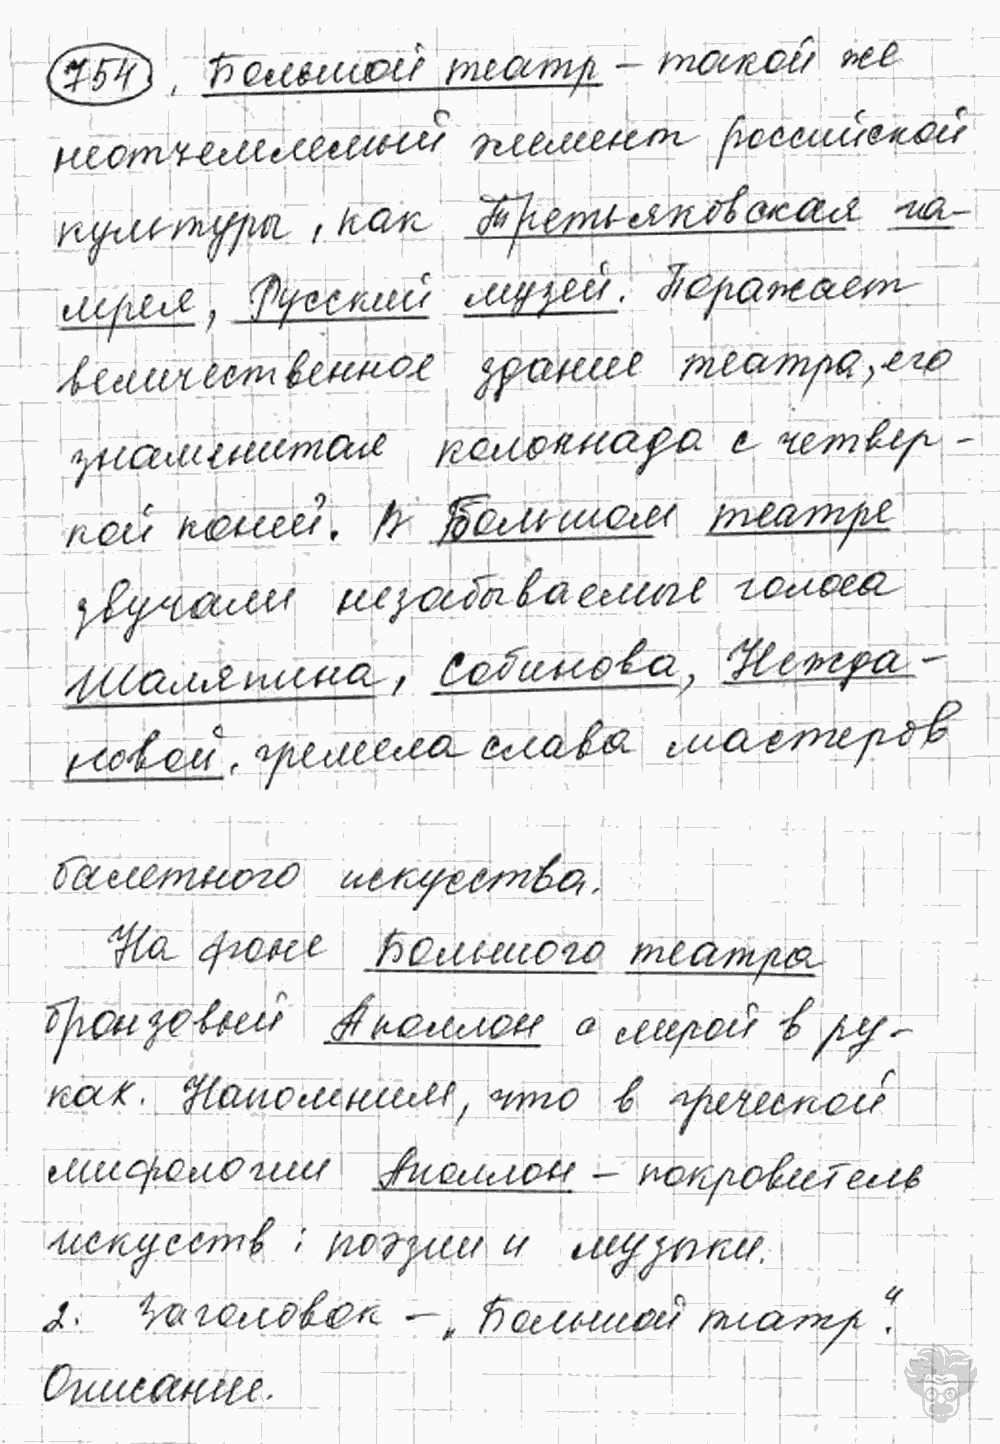 754. Большой театр – такой же
неотъемлемый элемент российской
культуры, как Третьяковская га-
лерея, Русский музей. Поражает
величественное здание театра, его
знаменитая колоннада с четвер-
кой коней. В Большом театре
звучали незабываемые голоса
Шаляпина, Собинова, Нежда-
новой, гремела слава мастеров
балетного искусства.
На фоне Большого театра
бронзовый Аполлон с лирой в ру-
ках. Напомним, что в греческой
мифологии Аполлон – покровитель
искусств: поэзии и музыки.
2. Заголовок – „Большой театр".
Описание.